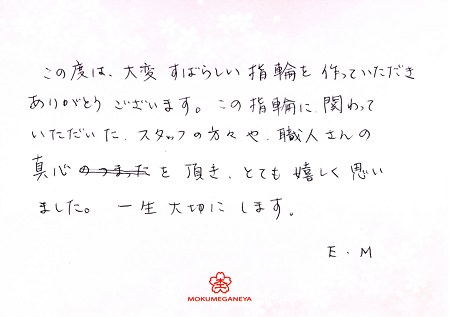 この度は、大変すばらしい指輪を作っていただき
ありがとうございます。この指輪に関わって
いただいた、スタッフの方々や、職人さんの
真心のつまったを頂き、とても嬉しく思い
ました。一生大切にします。
E.M
MOKUMEGANEYA